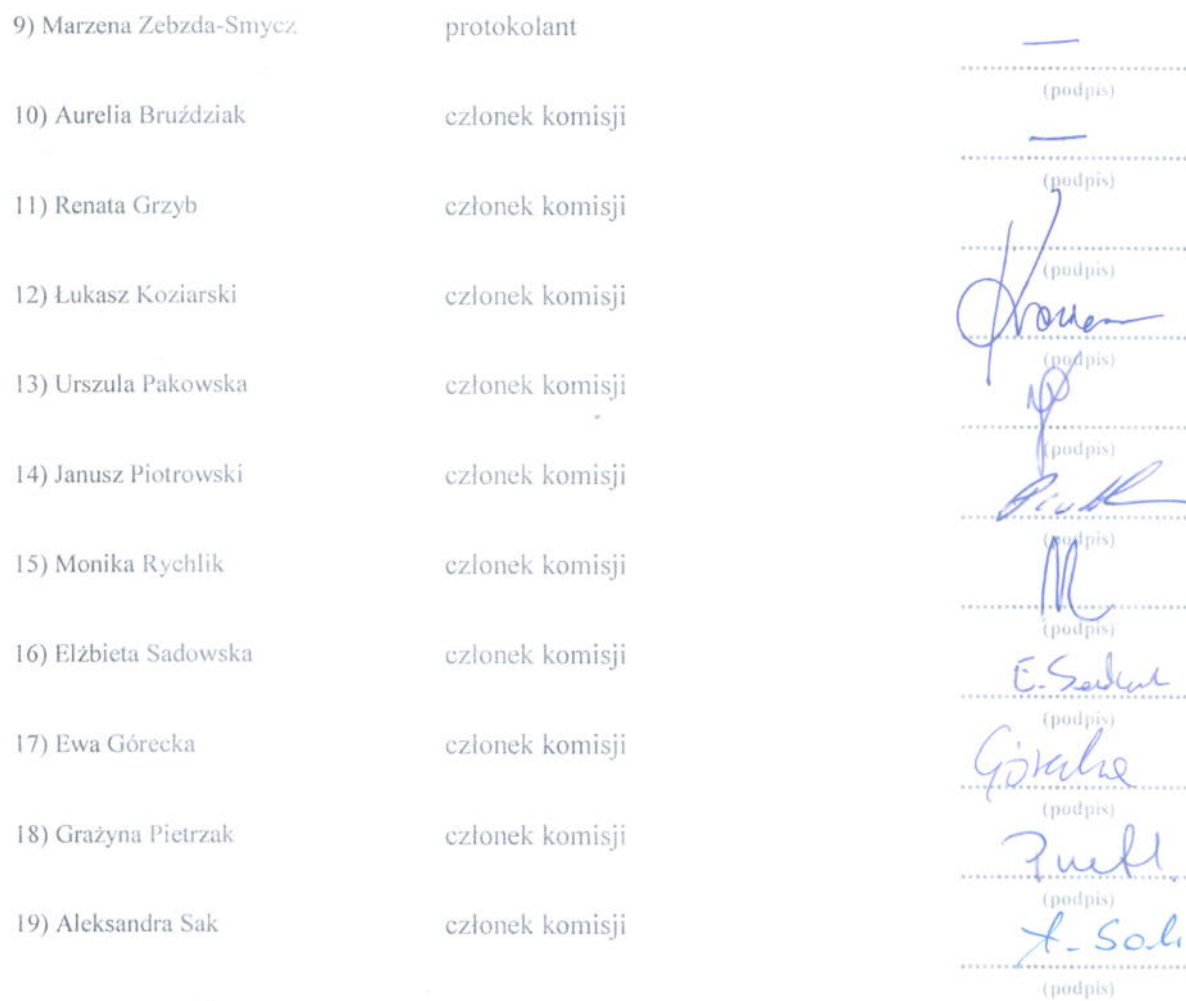 9) Marzena Zebzda-Smycz protokolant —
(podpis)
10) Aurelia Bruździak członek komisji —
(podpis)
11) Renata Grzyb członek komisji
(podpis)
12) Łukasz Koziarski członek komisji
(podpis)
13) Urszula Pakowska członek komisji
(podpis)
14) Janusz Piotrowski członek komisji
(podpis)
15) Monika Rychlik członek komisji
(podpis)
16) Elżbieta Sadowska członek komisji
(podpis)
17) Ewa Górecka członek komisji Górecka
(podpis)
18) Grażyna Pietrzak członek komisji
(podpis)
19) Aleksandra Sak członek komisji A. Sak
(podpis)